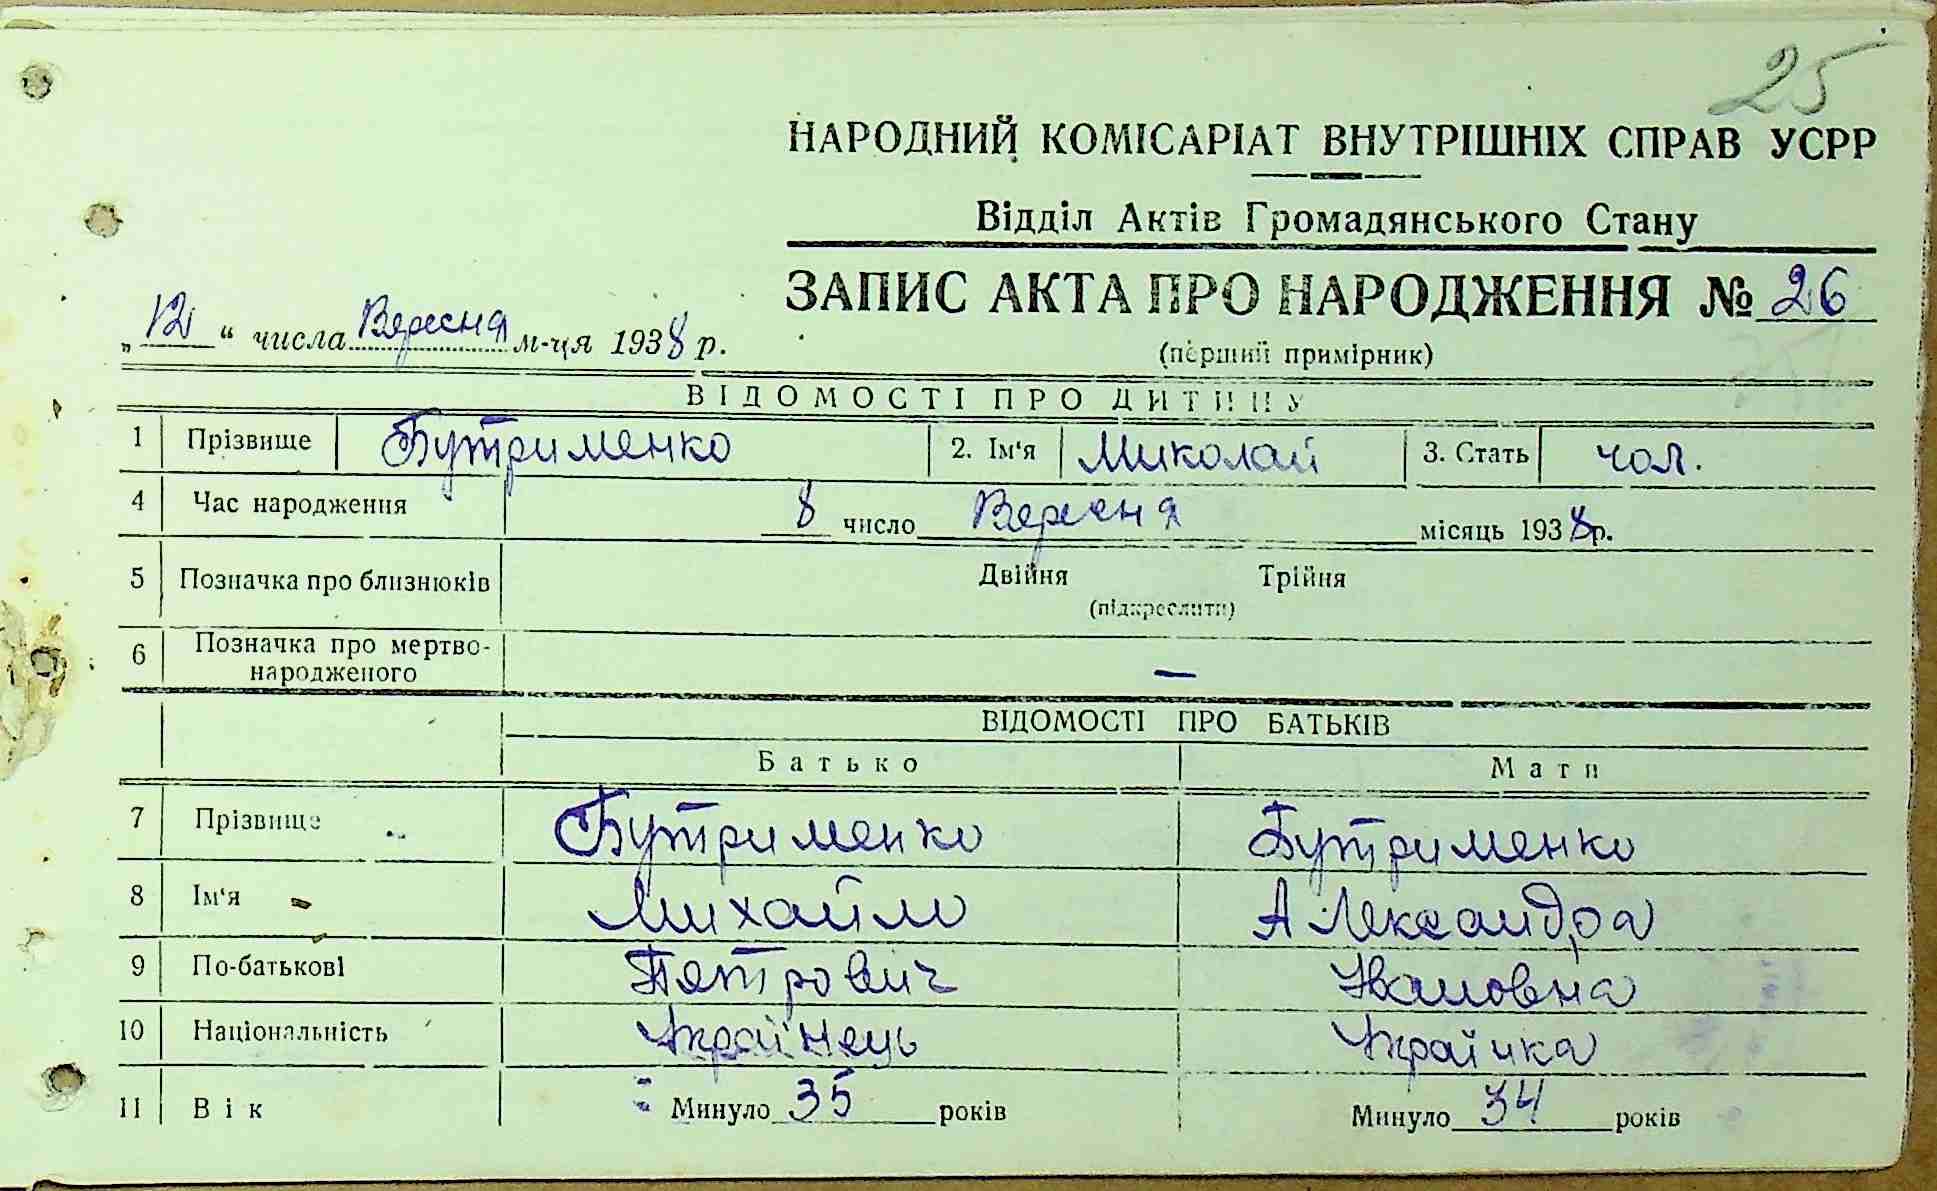 25
НАРОДНИЙ КОМІСАРІАТ ВНУТРІШНІХ СПРАВ УСРР
Відділ Актів Громадянського Стану
ЗАПИС АКТА ПРО НАРОДЖЕННЯ № 26
„12“ числа Вересня м-ця 1938 р.
(перший примірник)
ВІДОМОСТІ ПРО ДИТИНУ
1 Прізвище Бутрименко 2. Ім‘я Миколай 3. Стать чол.
4 Час народження 8 число Вересня місяць 1938р.
5 Позначка про близнюків Двійня Трійня
(підкреслити)
6 Позначка про мертво-
народженого —
ВІДОМОСТІ ПРО БАТЬКІВ
Батько Мати
7 Прізвище Бутрименко Бутрименко
8 Ім‘я Михайло Александра
9 По-батькові Пятрович Ивановна
10 Національність Українець Українка
11 Вік Минуло 35 років Минуло 34 років